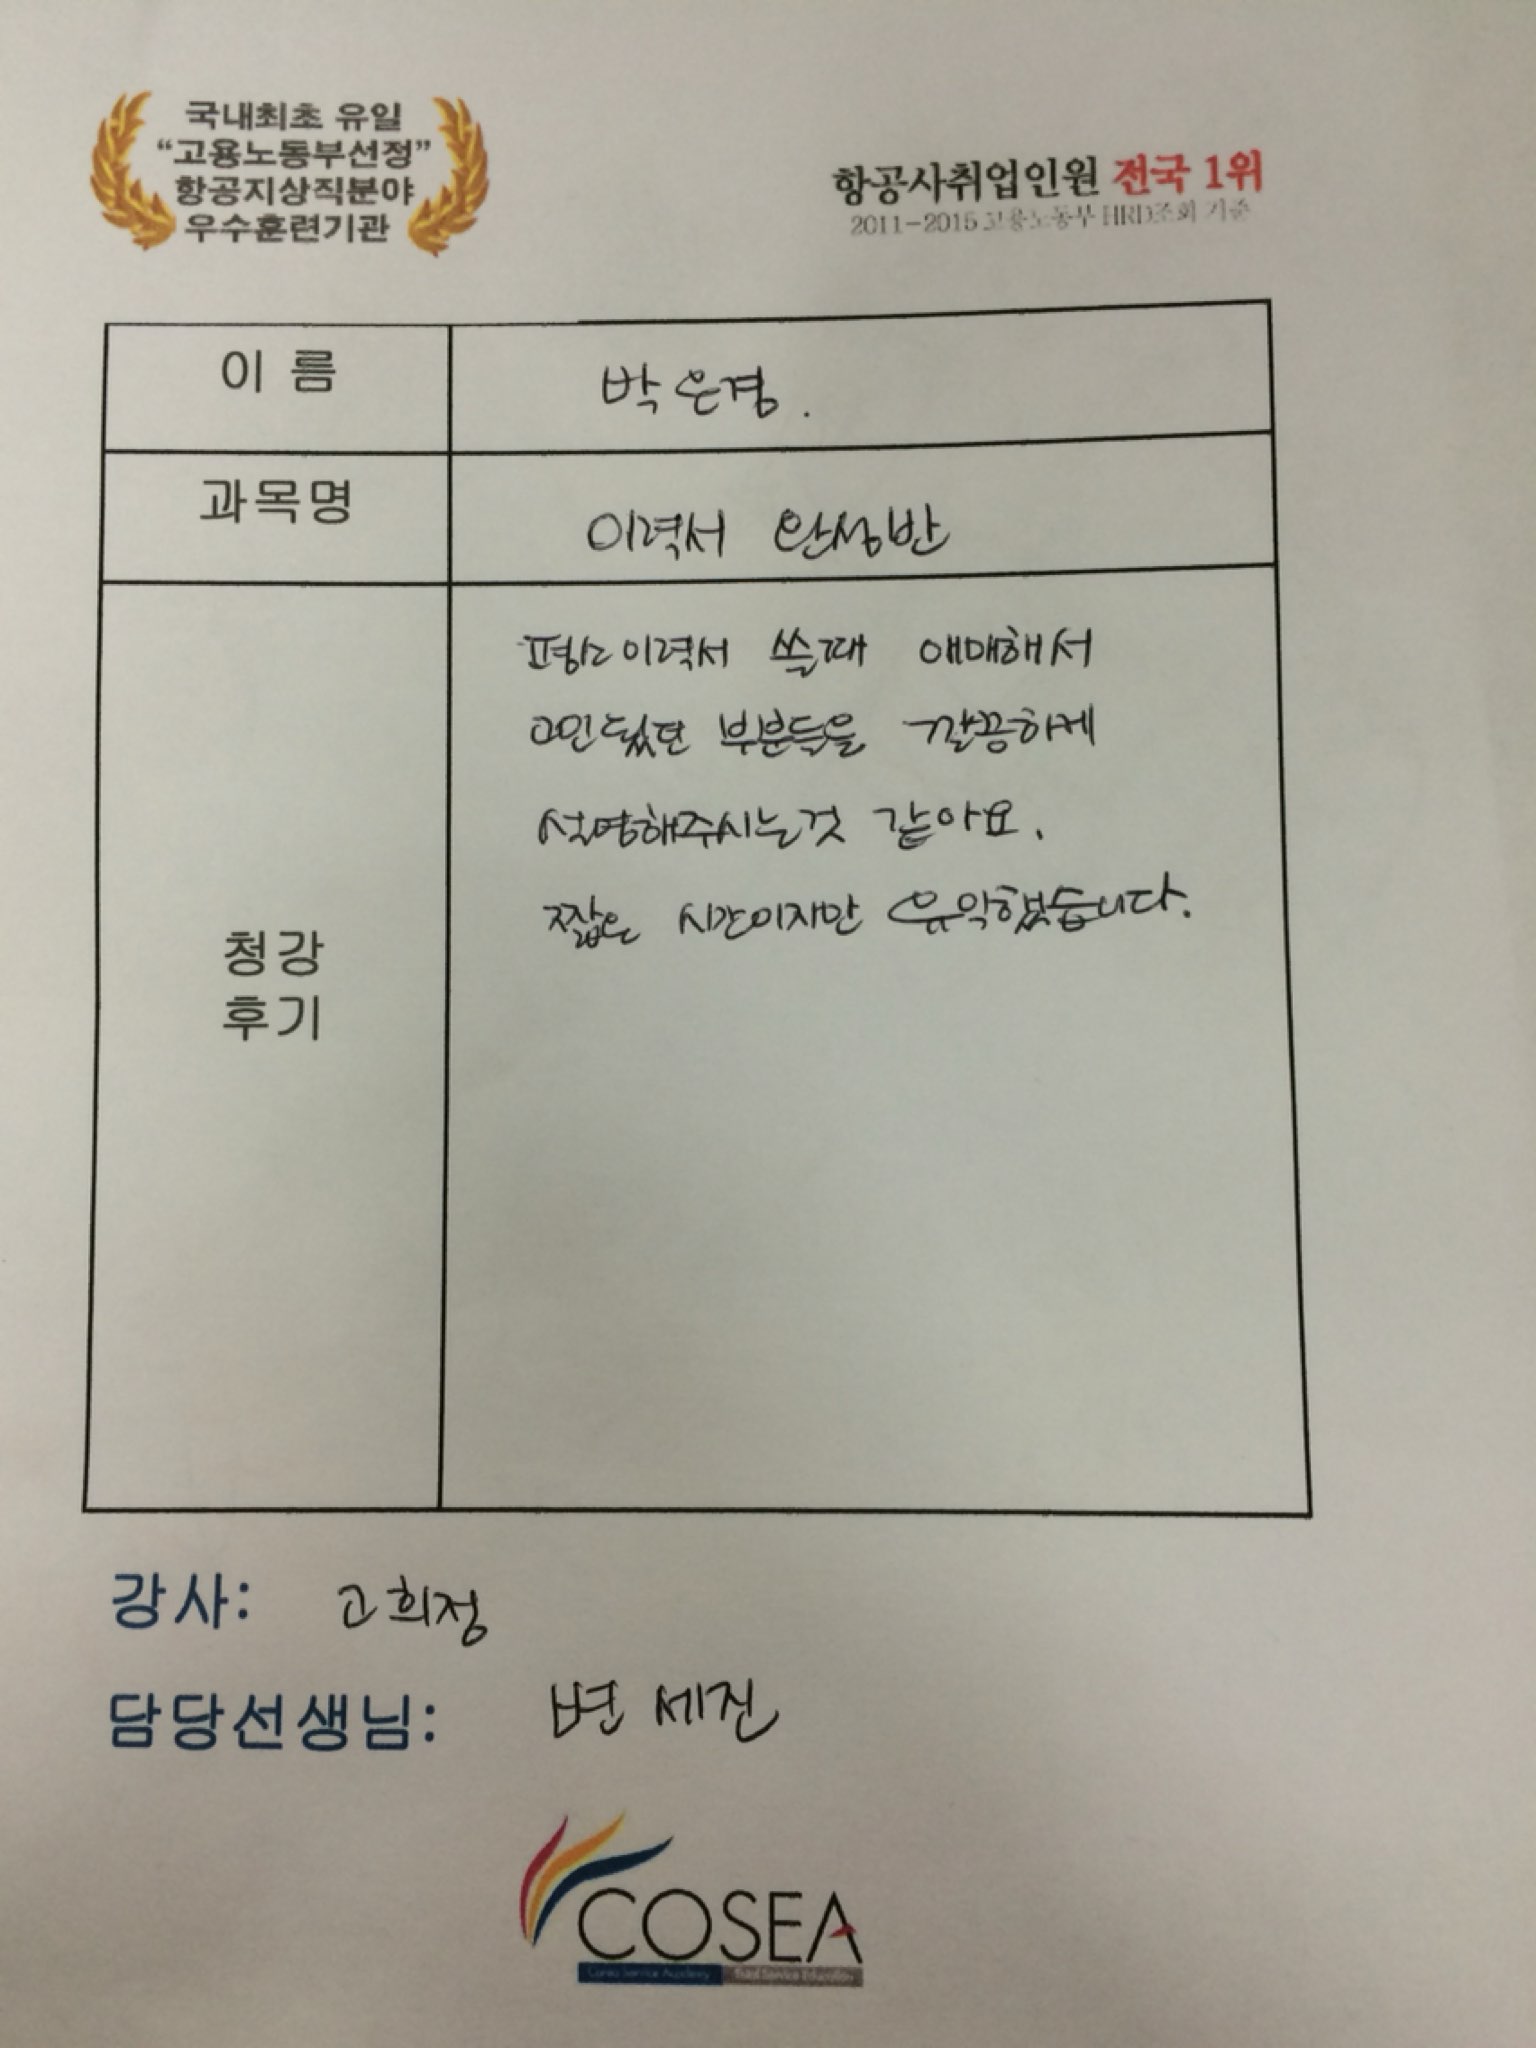 국내최초 유일
“고용노동부선정”
항공지상직분야
우수훈련기관
항공사취업인원 전국 1위
2011-2015 고용노동부 HRD조회 기준
이 름
박은경.
과목명
이력서 완성반
청강
후기
평소 이력서 쓸때 애매해서
고민됬던 부분들을 깔끔하게
설명해주시는것 같아요.
짧은 시간이지만 유익했습니다.
강사: 고희정
담당선생님: 변세진
COSEA
Corea Service Academy Total Service Education